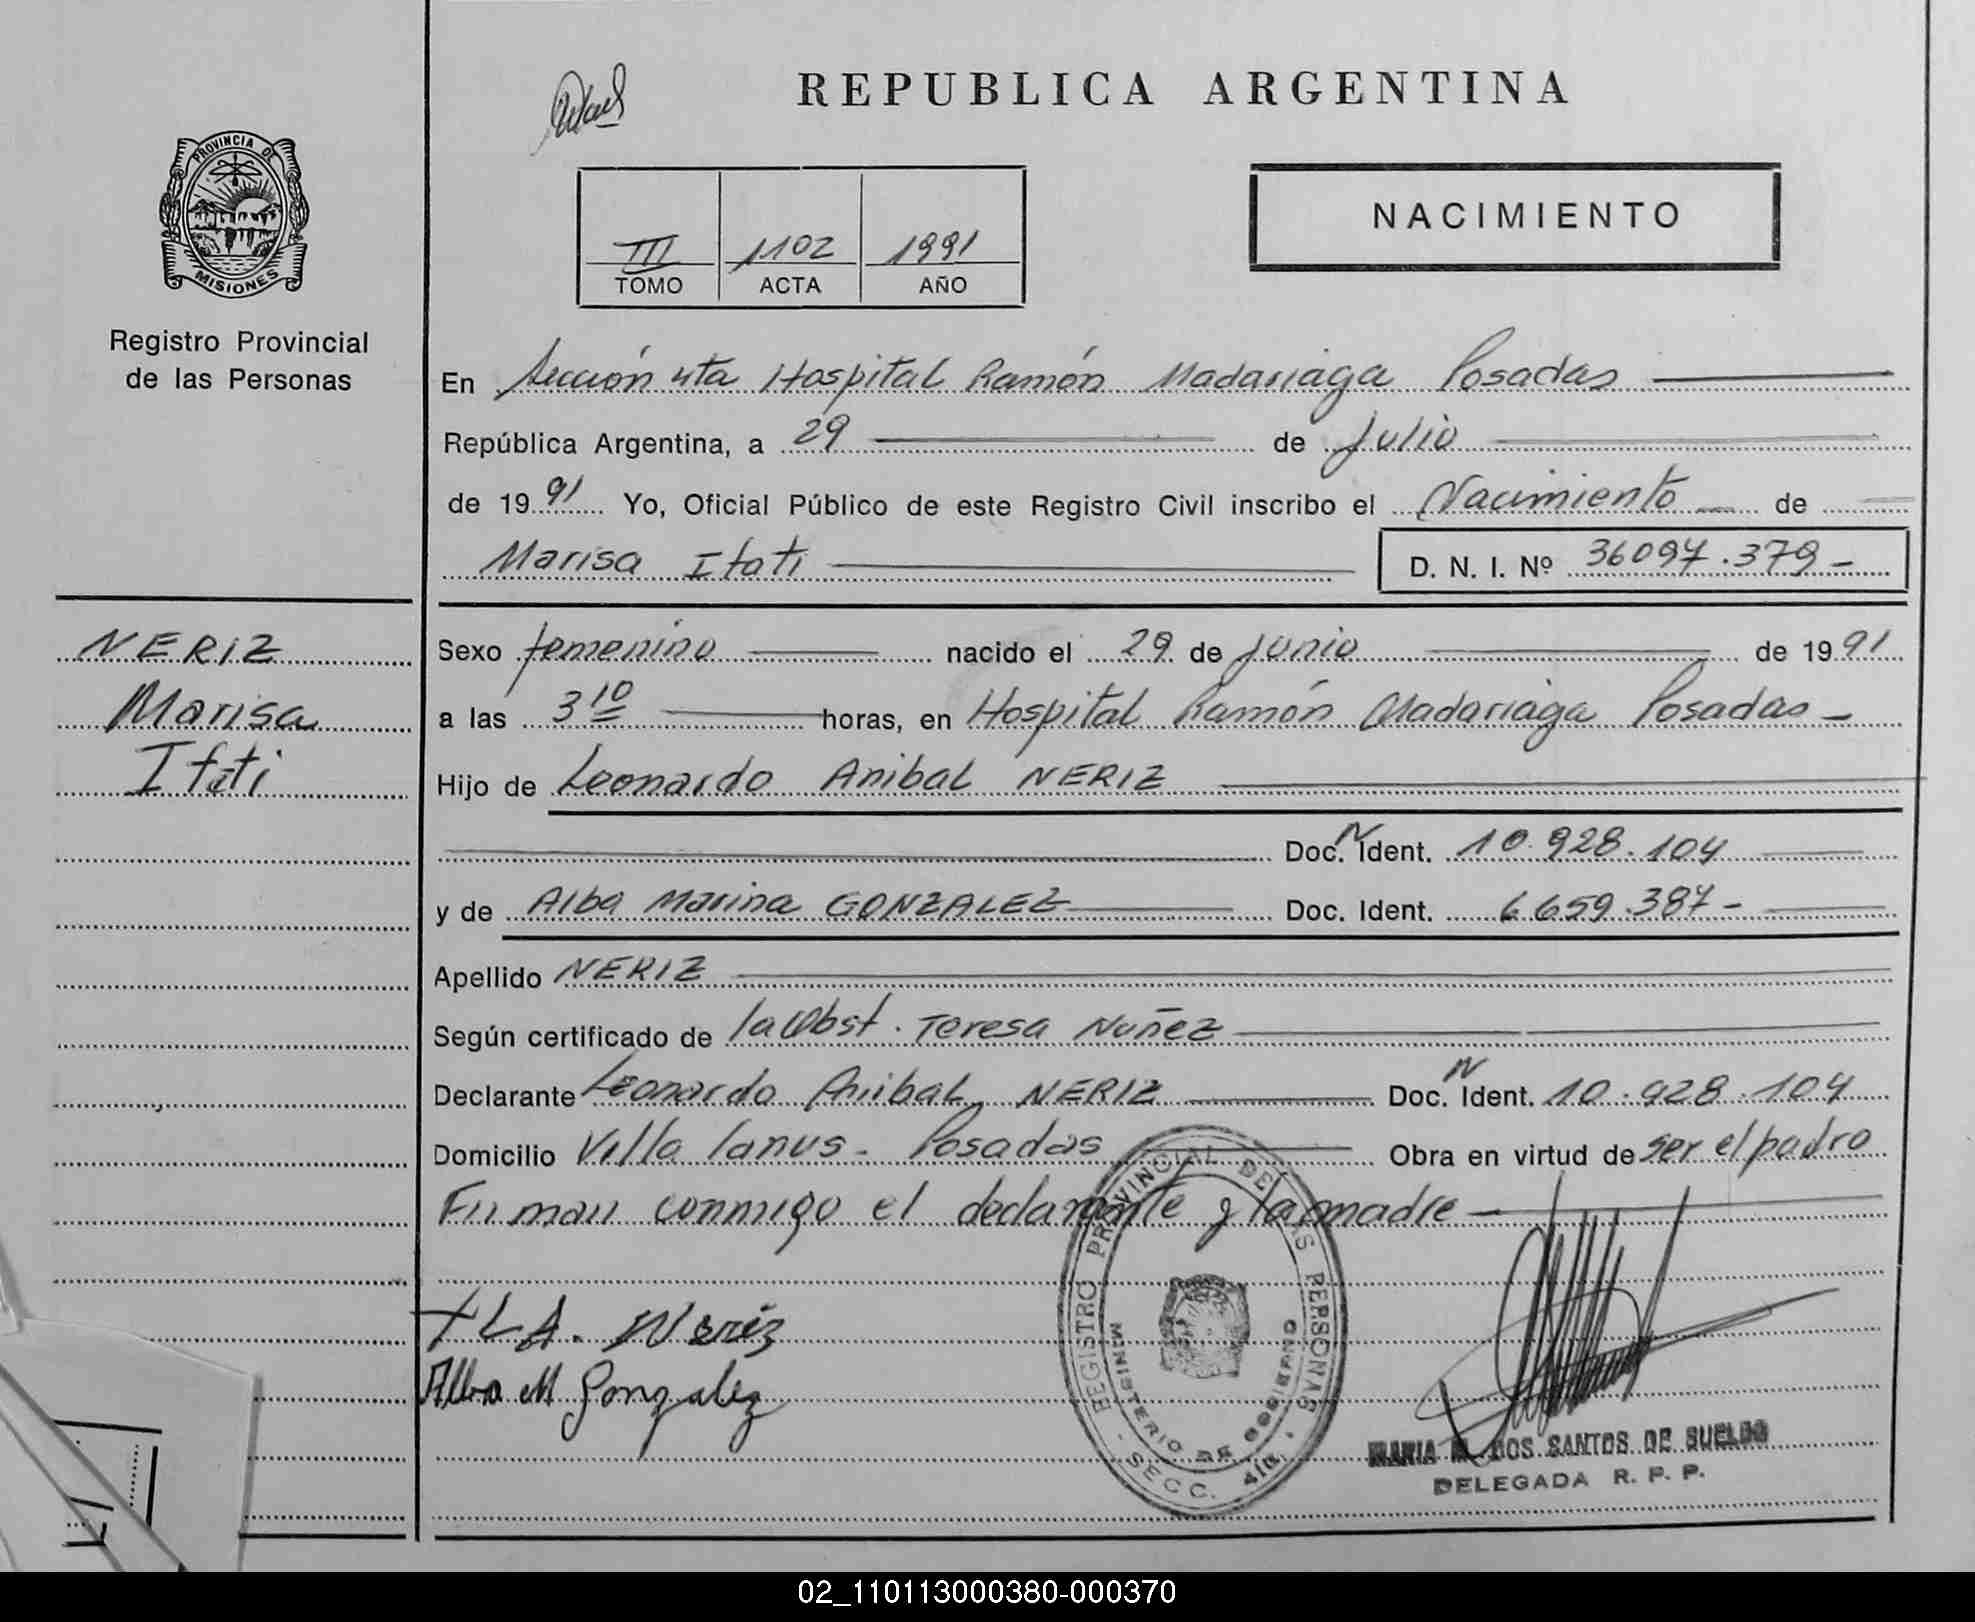 REPUBLICA ARGENTINA
PROVINCIA DE
MISIONES
Registro Provincial
de las Personas
III 1102 1991
TOMO ACTA AÑO
NACIMIENTO
En Sección 4ta Hospital Ramón Madariaga Posadas
República Argentina, a 29 de Julio
de 1991 Yo, Oficial Público de este Registro Civil inscribo el Nacimiento de
Marisa Itati D. N. I. Nº 36097.379-
NERIZ
Marisa
Itati
Sexo femenino nacido el 29 de Junio de 1991
a las 3 10 horas, en Hospital Ramón Madariaga Posadas-
Hijo de Leonardo Anibal NERIZ
Doc. N Ident. 10.928.104
y de Alba Marina GONZALEZ Doc. Ident. 6659.387-
Apellido NERIZ
Según certificado de la Obst. Teresa Nuñez
Declarante Leonardo Anibal NERIZ Doc. N Ident. 10.928.104
Domicilio Villa Lanus - Posadas Obra en virtud de ser el padre
Firman conmigo el declarante y la madre
L A. Neriz
Alba M Gonzalez
REGISTRO PROVINCIAL DE LAS PERSONAS
MINISTERIO DE GOBIERNO
SECC. 4ta.
MARIA M. DOS SANTOS DE SUELDO
DELEGADA R. P. P.
02_110113000380-000370